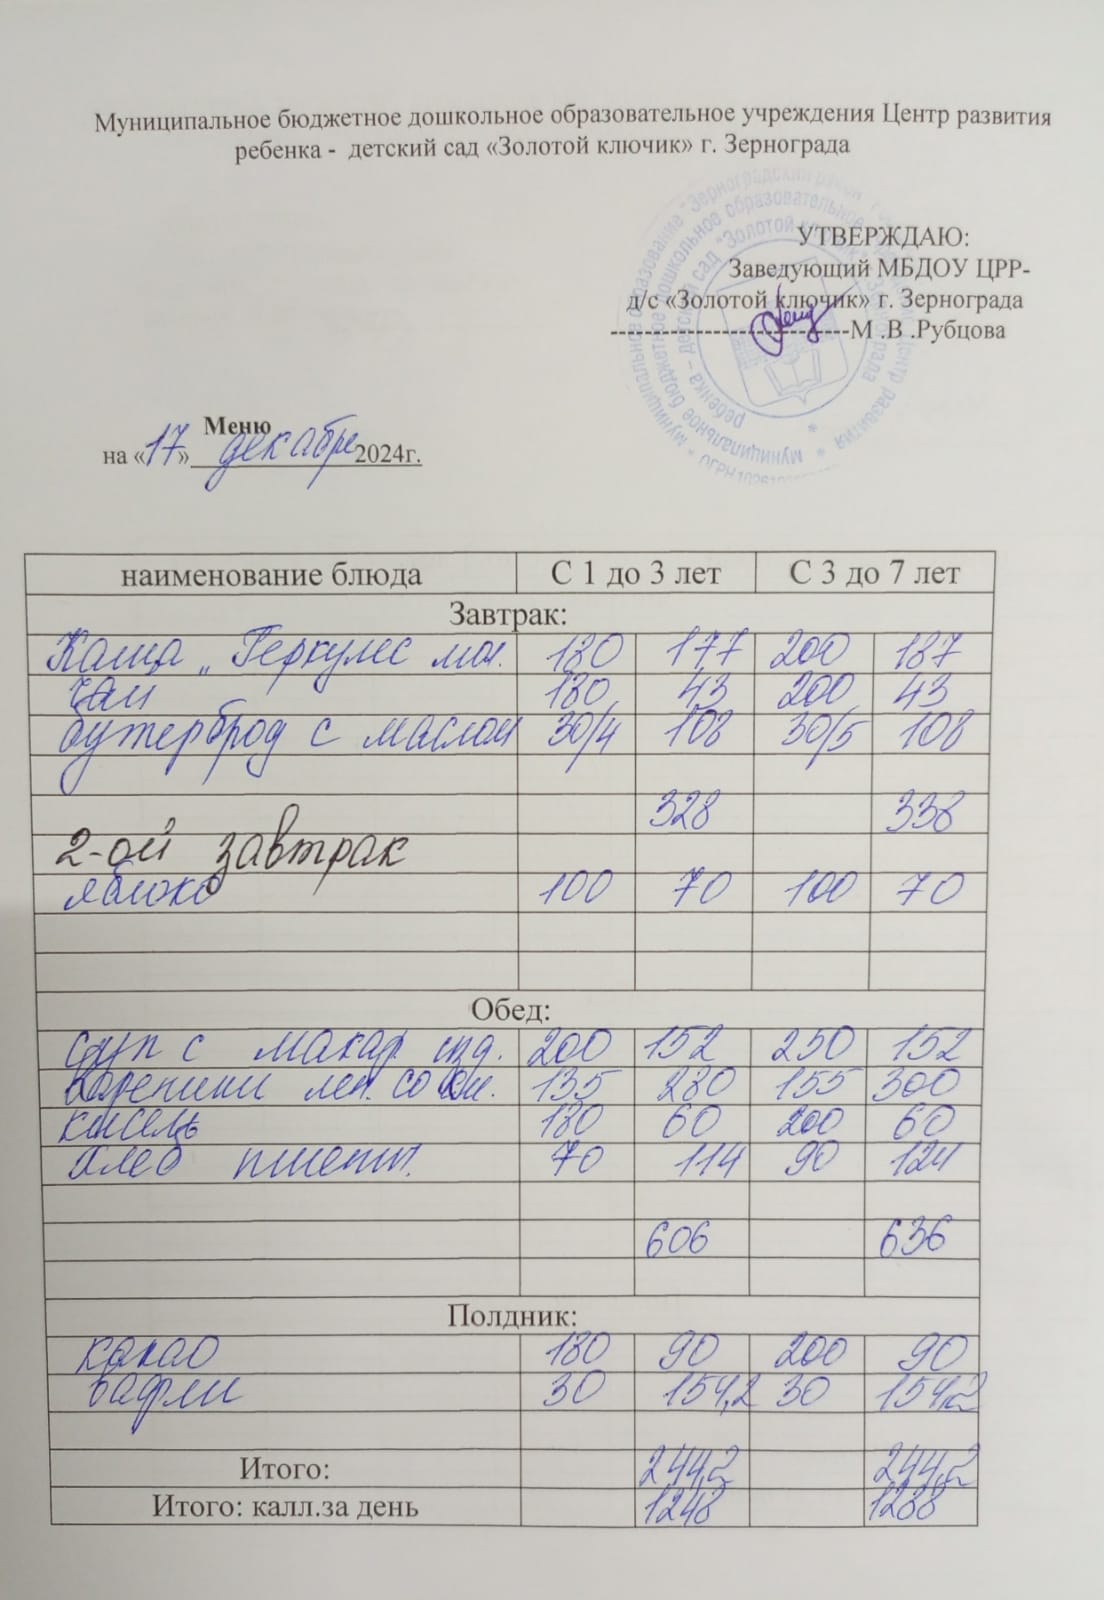 Муниципальное бюджетное дошкольное образовательное учреждения Центр развития
ребенка - детский сад «Золотой ключик» г. Зернограда
УТВЕРЖДАЮ:
Заведующий МБДОУ ЦРР-
д/с «Золотой ключик» г. Зернограда
----------------------------М .В .Рубцова
Меню
на «17» декабря 2024г.
наименование блюда С 1 до 3 лет С 3 до 7 лет
Завтрак:
Каша „Геркулес мол. 180 177 200 187
чай 180 43 200 43
бутерброд с маслом 30/4 108 30/5 108
328 338
2-ой завтрак
яблоко 100 70 100 70
Обед:
Суп с макар. изд. 200 152 250 152
Вареники лен. со см. 135 280 155 300
кисель 180 60 200 60
хлеб пшен. 70 114 90 124
606 636
Полдник:
какао 180 90 200 90
вафли 30 154,2 30 154,2
Итого: 244,2 244,2
Итого: калл.за день 1248 1288